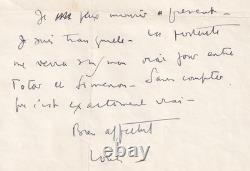 Je peux mourir à présent -
Je suis tranquille - La postérité
me verra sous mon vrai jour entre
Totor et Simenon - Sans compter
que c'est exactement vrai -
Bien affect
Louis